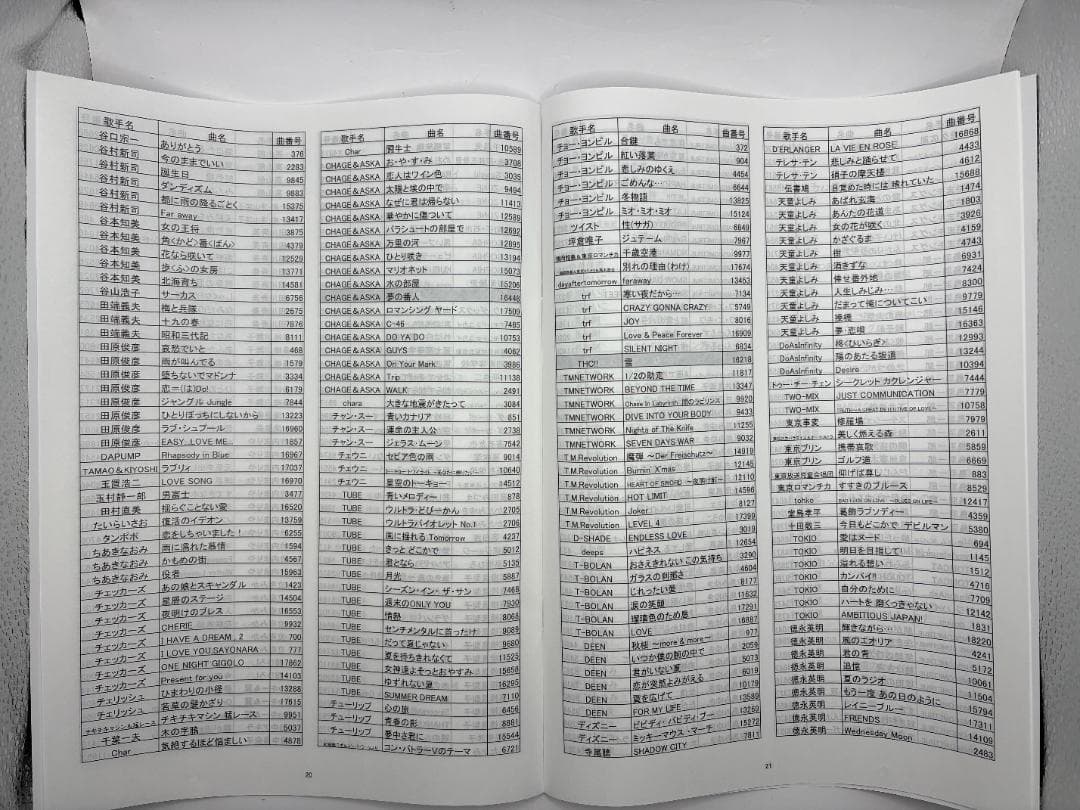 歌手名 曲名 曲番号
谷口宗一 ありがとう 376
谷村新司 今のままでいい 2283
谷村新司 誕生日 9845
谷村新司 ダンディズム 9883
谷村新司 都に雨の降るごとく 15375
谷村新司 Far away 13417
谷本知美 女の王将 3875
谷本知美 角(かど)番(ばん) 4379
谷本知美 花なら咲いて 12529
谷本知美 歩(ふ)の女房 13771
谷本知美 北海育ち 14581
谷山浩子 サーカス 6756
田端義夫 梅と兵隊 2675
田端義夫 十九の春 7876
田端義夫 昭和三代記 8111
田原俊彦 哀愁でいと 468
田原俊彦 雨が叫んでる 1579
田原俊彦 堕ちないでマドンナ 3334
田原俊彦 恋=(は)Do! 6179
田原俊彦 ジャングル Jungle 7844
田原俊彦 ひとりぼっちにしないから 13223
田原俊彦 ラブ・シュプール 16960
田原俊彦 EASY...LOVE ME... 1857
DAPUMP Rhapsody in Blue 16967
TAMAO&KIYOSHI ラブリィ 17037
玉置浩二 LOVE SONG 16970
玉村静一郎 男富士 3477
田村直美 揺らぐことない愛 16520
たいらいさお 復活のイデオン 13759
タンポポ 恋をしちゃいました! 6255
ちあきなおみ 雨に濡れた慕情 1594
ちあきなおみ かもめの街 4567
ちあきなおみ 役者 15963
チェッカーズ あの娘とスキャンダル 1423
チェッカーズ 星屑のステージ 14504
チェッカーズ 夜明けのブレス 16553
チェッカーズ CHERIE 9932
チェッカーズ I HAVE A DREAM . 2 700
チェッカーズ I LOVE YOU,SAYONARA 777
チェッカーズ ONE NIGHT GIGOLO 17862
チェッカーズ Present for you 14103
チェリッシュ ひまわりの小径 13288
チェリッシュ 若草の髪かざり 17615
チキチキマシン 猛レース 9951
千葉一夫 木の字勝 5037
Char 気絶するほど悩ましい 4878
歌手名 曲名 曲番号
Char 闘牛士 10589
CHAGE&ASKA お・や・す・み 3708
CHAGE&ASKA 恋人はワイン色 3035
CHAGE&ASKA 太陽と埃の中で 9494
CHAGE&ASKA なぜに君は帰らない 11413
CHAGE&ASKA 華やかに傷ついて 12589
CHAGE&ASKA パラシュートの部屋で 12692
CHAGE&ASKA 万里の河 12895
CHAGE&ASKA ひとり咲き 13194
CHAGE&ASKA マリオネット 15073
CHAGE&ASKA 水の部屋 15206
CHAGE&ASKA 夢の番人 16448
CHAGE&ASKA ロマンシング ヤード 17509
CHAGE&ASKA C-46 7485
CHAGE&ASKA DO YA DO 10753
CHAGE&ASKA GUYS 4062
CHAGE&ASKA On Your Mark 3986
CHAGE&ASKA Trip 11138
CHAGE&ASKA WALK 2491
chara 大きな地震がきたって 3084
チャン・スー 青いカナリア 851
チャン・スー 運命の主人公 2738
チャン・スー ジェラス・ムーン 7542
チェウニ セピア色の雨 9014
チェウニ 10640
チェウニ 星空のトーキョー 14512
TUBE 青いメロディー 878
TUBE ウルトラ・どびーかん 2705
TUBE ウルトラバイオレット No.1 2706
TUBE 風に揺れる Tomorrow 4237
TUBE きっと どこかで 5012
TUBE 君となら 5135
TUBE 月光 5887
TUBE シーズン・イン・ザ・サン 7468
TUBE 週末のONLY YOU 7830
TUBE 情熱 8068
TUBE センチメンタルに首ったけ 9089
TUBE だって夏じゃない 9680
TUBE 夏を待ちきれなくて 11523
TUBE 女神達よそっとおやすみ 15658
TUBE ゆずれない夏 16293
TUBE SUMMER DREAM 7110
チューリップ 心の旅 6456
チューリップ 青春の影 8881
チューリップ 夢中さ君に 15544
コン・バトラーVのテーマ 6721
20
歌手名 曲名 曲番号
チョー・ヨンピル 合鍵 372
チョー・ヨンピル 紅い落葉 904
チョー・ヨンピル 悲しみのゆくえ 4454
チョー・ヨンピル ごめんな… 6644
チョー・ヨンピル 冬物語 13825
チョー・ヨンピル ミオ・ミオ・ミオ 15124
ツイスト 性(サガ) 6649
坪倉唯子 ジュテーム 7967
千歳空港 9977
別れの理由(わけ) 17674
dayaftertomorrow faraway 13453
trf 寒い夜だから… 7134
trf CRAZY GONNA CRAZY 5749
trf JOY 8016
trf Love & Peace Forever 16909
trf SILENT NIGHT 9834
THC!! 雪 16218
TMNETWORK 1/2の助走 11817
TMNETWORK BEYOND THE TIME 13347
TMNETWORK 9920
TMNETWORK DIVE INTO YOUR BODY 9433
TMNETWORK Nights of The Knife 11255
TMNETWORK SEVEN DAYS WAR 9032
T.M.Revolution 魔弾 ~Der Freischutz~ 14919
T.M.Revolution Burnin' X'mas 12145
T.M.Revolution HEART OF SWORD ~夜明け前~ 12110
T.M.Revolution HOT LIMIT 14596
T.M.Revolution Joker 8127
T.M.Revolution LEVEL 4 17399
D-SHADE ENDLESS LOVE 3019
deeps ハピネス 12654
T-BOLAN おさえきれない この気持ち 3290
T-BOLAN ガラスの刹那さ 4604
T-BOLAN じれったい愛 8177
T-BOLAN 涙の笑顔 11632
T-BOLAN 瑠璃色のため息 17291
T-BOLAN LOVE 16887
DEEN 秋桜 ~more & more~ 977
DEEN いつか僕の腕の中で 2059
DEEN 君がいない夏 5073
DEEN 恋が突然よみがえる 6019
DEEN 翼を広げて 10179
DEEN FOR MY LIFE 13589
ディズニー ビビディ・バビディ・ブー 13260
ディズニー ミッキーマウス・マーチ 15272
寺尾聰 SHADOW CITY 7811
歌手名 曲名 曲番号
D'ERLANGER LA VIE EN ROSE 16868
テレサ・テン 悲しみと踊らせて 4433
テレサ・テン 硝子の摩天楼 4612
伝書鳩 目覚めた時には 晴れていた 15688
天童よしみ あばれ玄海 1474
天童よしみ あんたの花道 1803
天童よしみ 女の花が咲く 3926
天童よしみ かざぐるま 4159
天童よしみ 絆 4743
天童よしみ 酒きずな 6931
天童よしみ 倖せ番外地 7424
天童よしみ 人生しみじみ… 8300
天童よしみ だまって俺についてこい 9779
天童よしみ 15146
天童よしみ 夢・恋唄 16363
DoAsInfinity 柊(ひいらぎ) 12993
DoAsInfinity 陽のあたる坂道 13244
DoAsInfinity Desire 10394
トゥー・チー・チェン シークレット カクレンジャー 7444
TWO-MIX JUST COMMUNICATION 7779
TWO-MIX TRUTH~A GREAT DETECTIVE OF LOVE~ 10758
東京事変 修羅場 7979
美しく燃える森 2611
東京プリン 携帯哀歌 5859
東京プリン ゴルフ道 6669
東京放送児童合唱団 仰げば尊し 883
東京ロマンチカ すすきのブルース 8529
tohko 12417
堂島孝平 葛飾ラプソディー 4359
十田敬三 今日もどこかで デビルマン 5380
TOKIO 愛はヌード 694
TOKIO 明日を目指して! 1145
TOKIO 溢れる想い 1512
TOKIO カンパイ!! 4716
TOKIO 自分のために 7709
TOKIO ハートを 磨くっきゃない 12142
TOKIO AMBITIOUS JAPAN! 1831
徳永英明 輝きながら… 18220
徳永英明 風のエオリア 4241
徳永英明 君の青 5172
徳永英明 追憶 10061
徳永英明 夏のラジオ 11504
徳永英明 もう一度 あの日のように 15794
徳永英明 レイニーブルー 17311
徳永英明 FRIENDS 14109
徳永英明 Wednesday Moon 2483
21